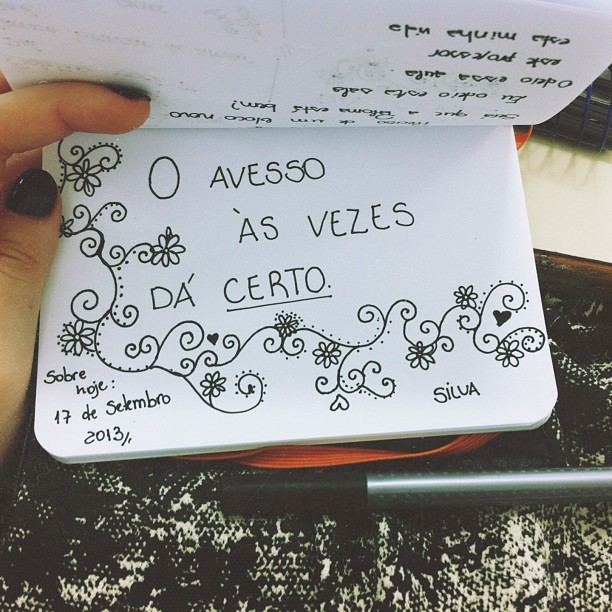 Preciso de um bloco novo
Será que a Paloma está bem?
Eu odeio esta sala
Odeio essa aula
este professor
esta minha vida
O AVESSO
ÀS VEZES
DÁ CERTO.
Sobre
hoje:
17 de Setembro
2013//.
SILVA